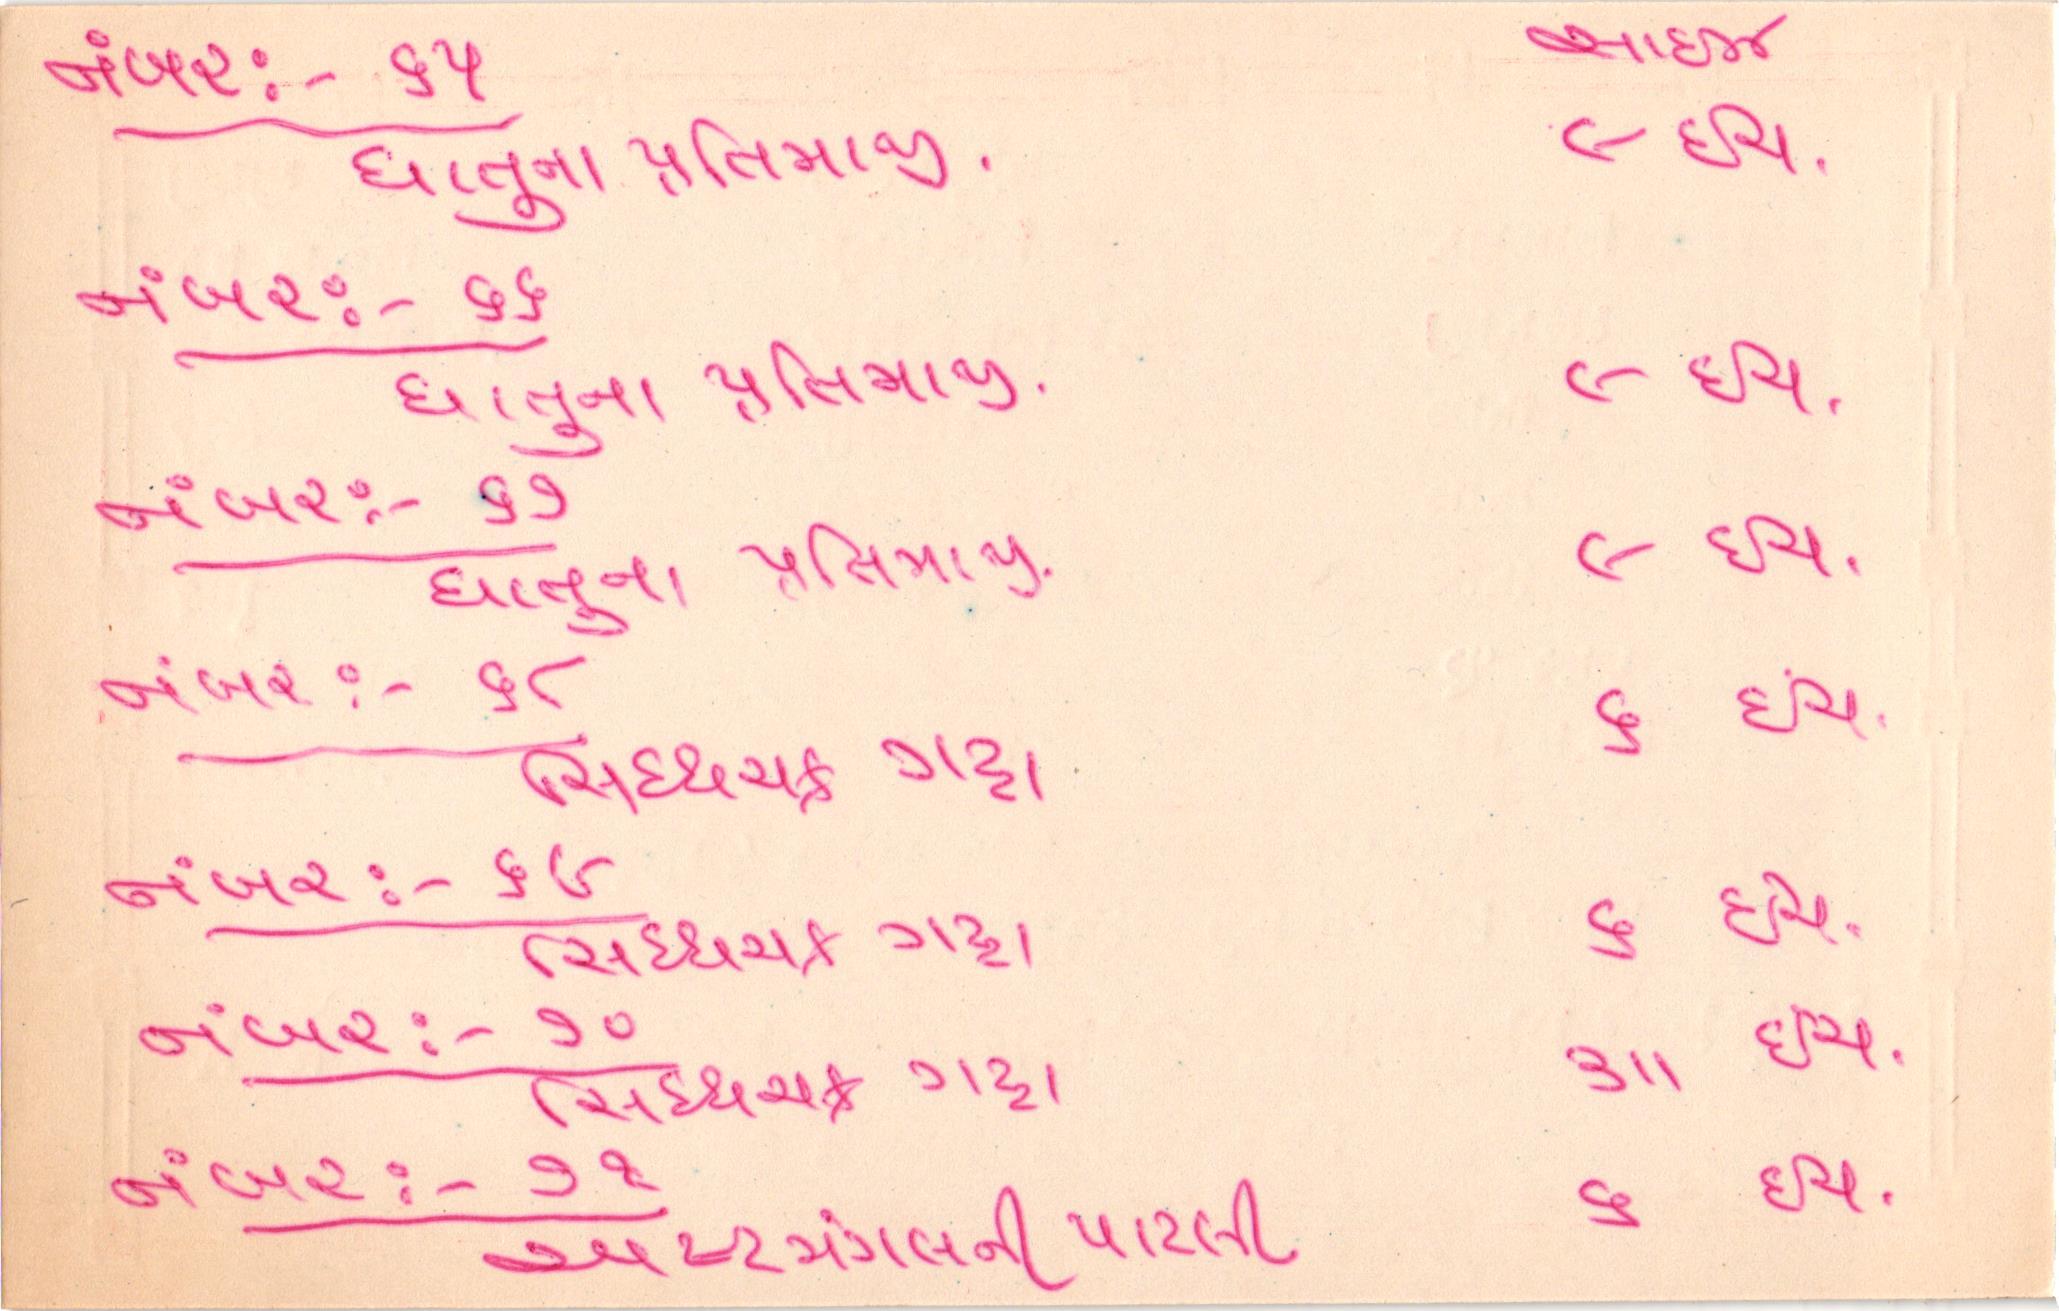 નંબર:- ૬૫ સાઇઝ
ધાતુના પ્રતિમાજી. ૯ ઈંચ.
નંબર:- ૬૬
ધાતુના પ્રતિમાજી. ૯ ઈંચ.
નંબર:- ૬૭
ધાતુના પ્રતિમાજી. ૯ ઈંચ.
નંબર:- ૬૮
સિધ્ધચક્ર ગટ્ટા ૬ ઈંચ.
નંબર:- ૬૯
સિધ્ધચક્ર ગટ્ટા ૬ ઈંચ.
નંબર:- ૭૦
સિધ્ધચક્ર ગટ્ટા ૩॥ ઈંચ.
નંબર:- ૭૧ ૬ ઈંચ.
અષ્ટમંગલની પાટલી